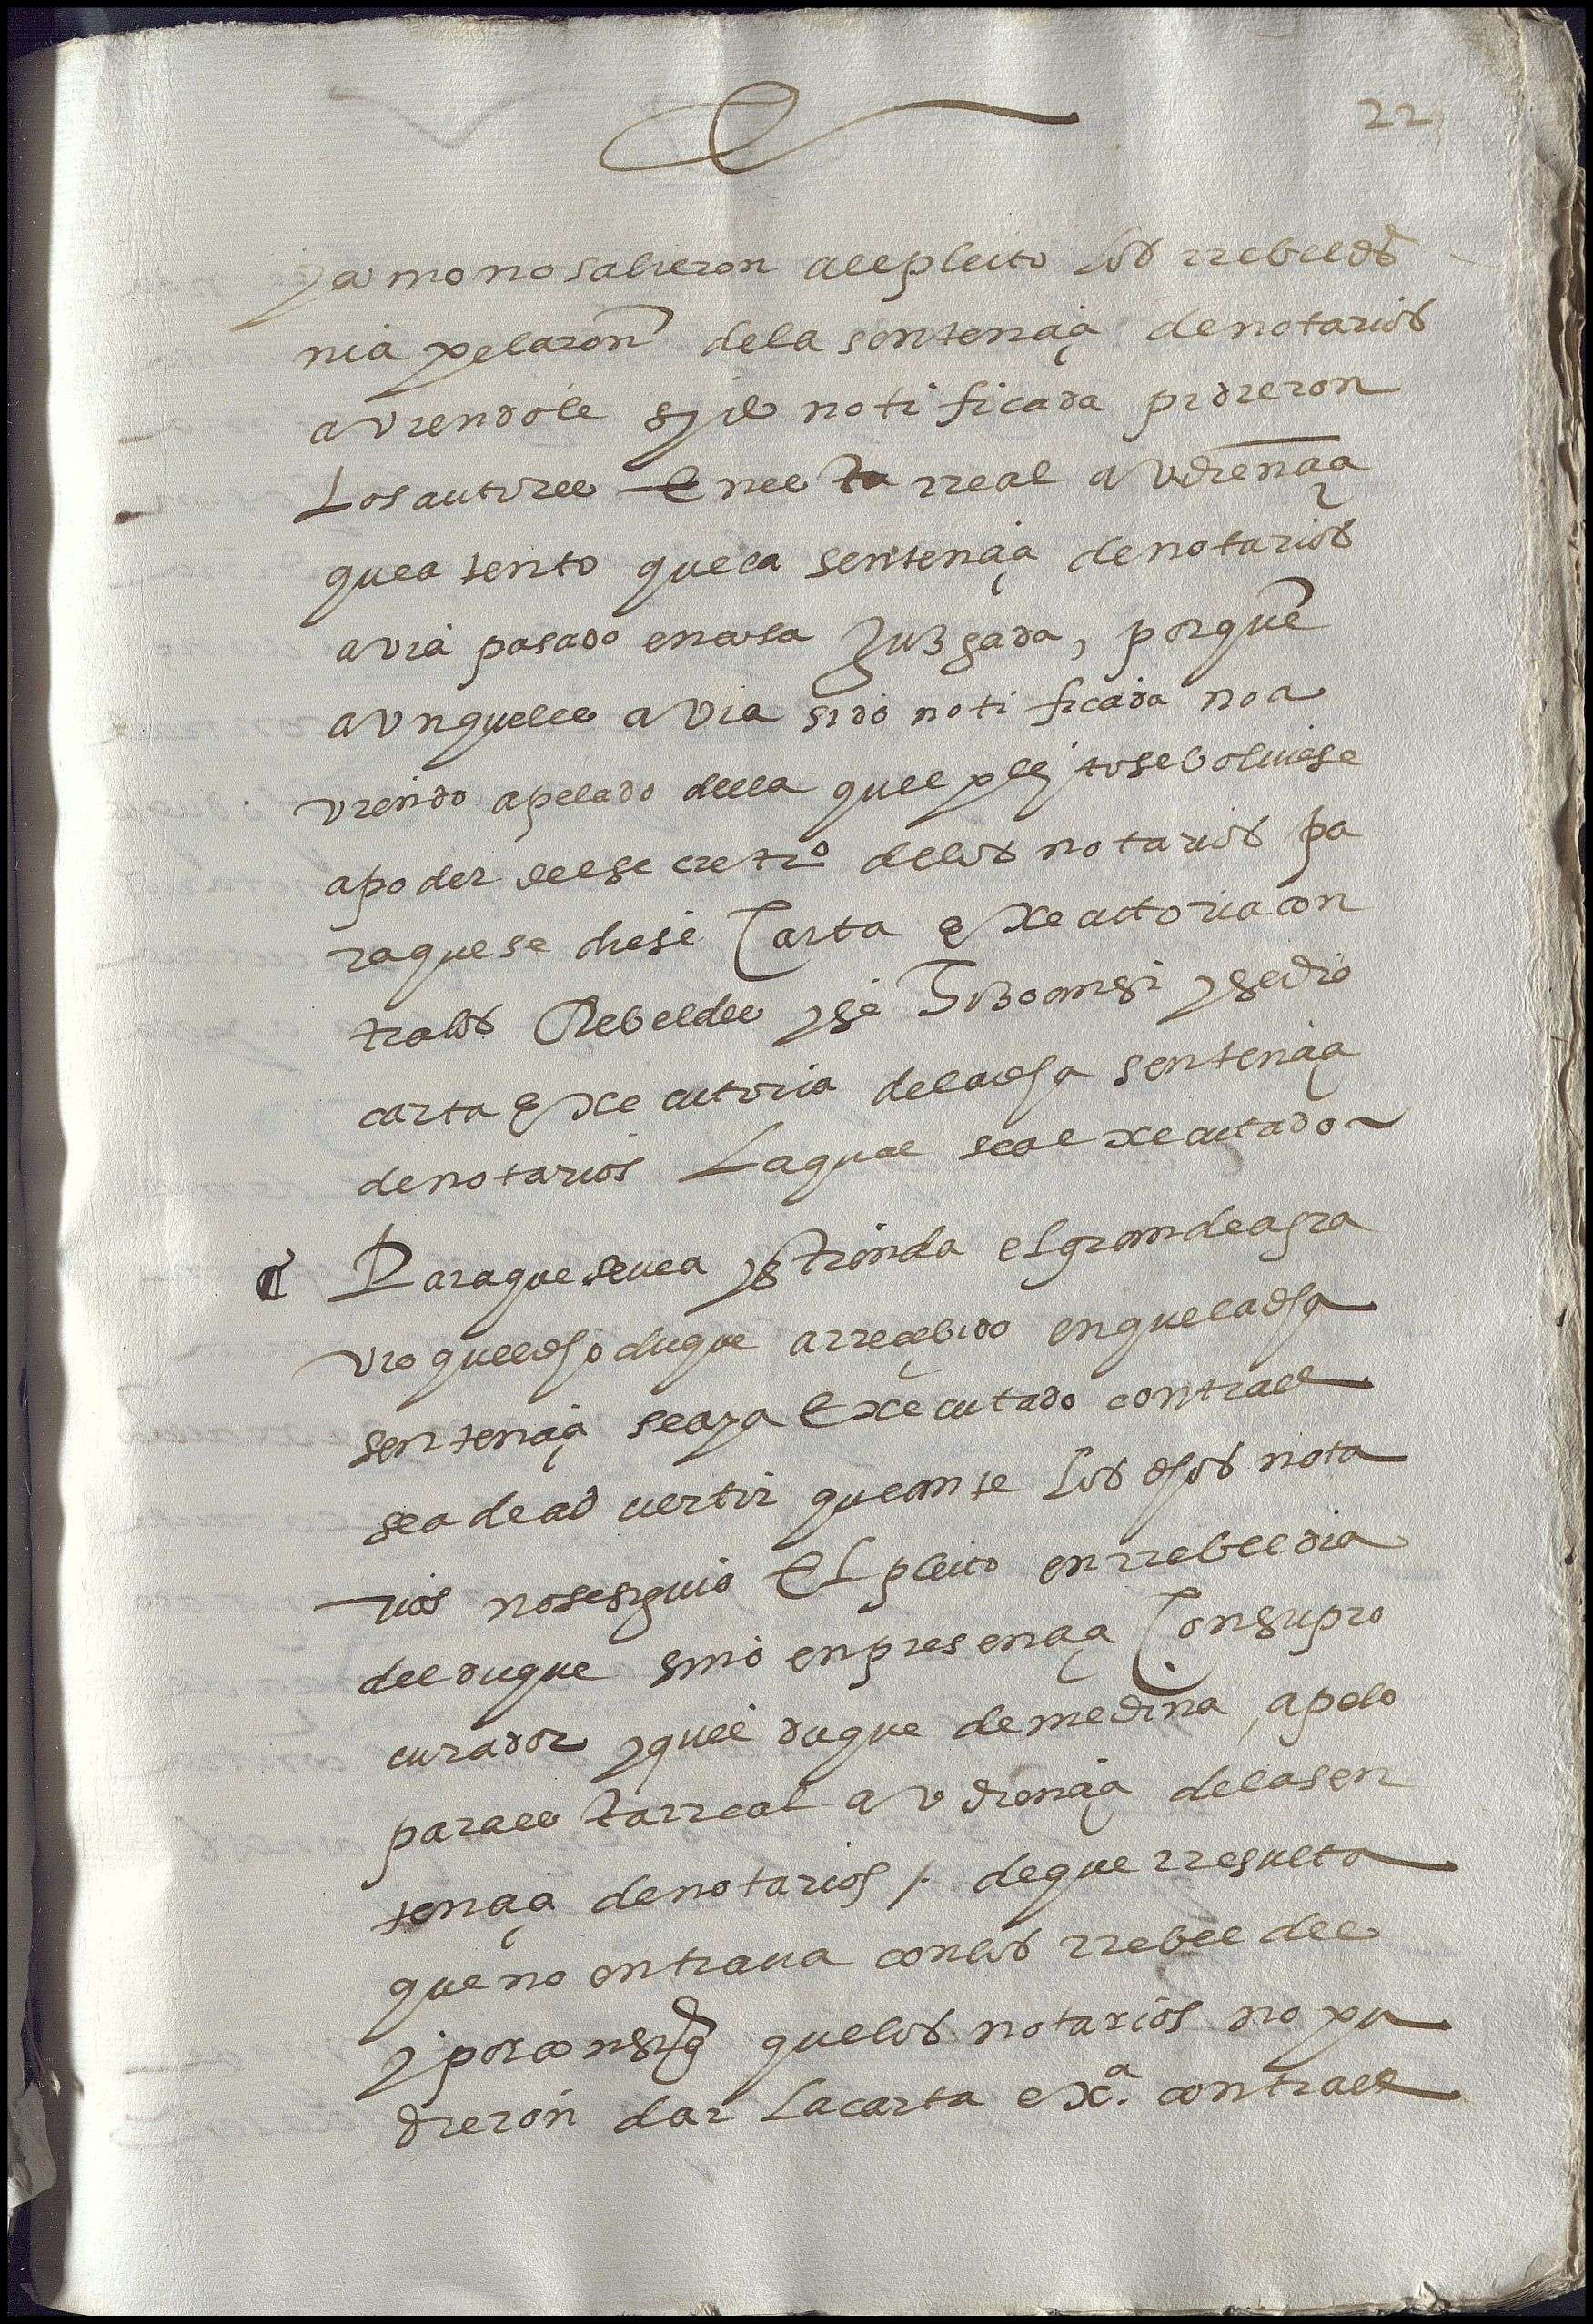 22
y a mo no salieron al pleito los rrebeldes
ni a pelaron dela sentençia de notarios
aviendole notificada pidieron
Los autores en el ta rreal avdiençia
que atento que la sentençia de notarios
avia pasado en cosa Juzgada, porque
avnque les avia sido notificada no a
viendo apelado della que el pleyto se bolviese
a poder del secretrio delos notarios pa
ra que se diese Carta executoria con
tra los Rebeldes y se hizo ansi y se dio
carta executoria dela dha sentençia
de notarios La qual se a executado
Para que se vea y entienda el grande agra
vio que el dho duque a rreçebido en que la dha
sentençia se aya executado contra el
se a de advertir que ante los dhos nota
rios no se siguio El pleito en rrebeldia
del duque sino en presençia Con su pro
curador y que el duque de medina apelo
para el ta rreal avdiençia dela sen
tençia de notarios /. de que rresulta
que no entrava con los rrebeldes
y por consigte que los notarios no pu
dieron dar La carta exa. contra el